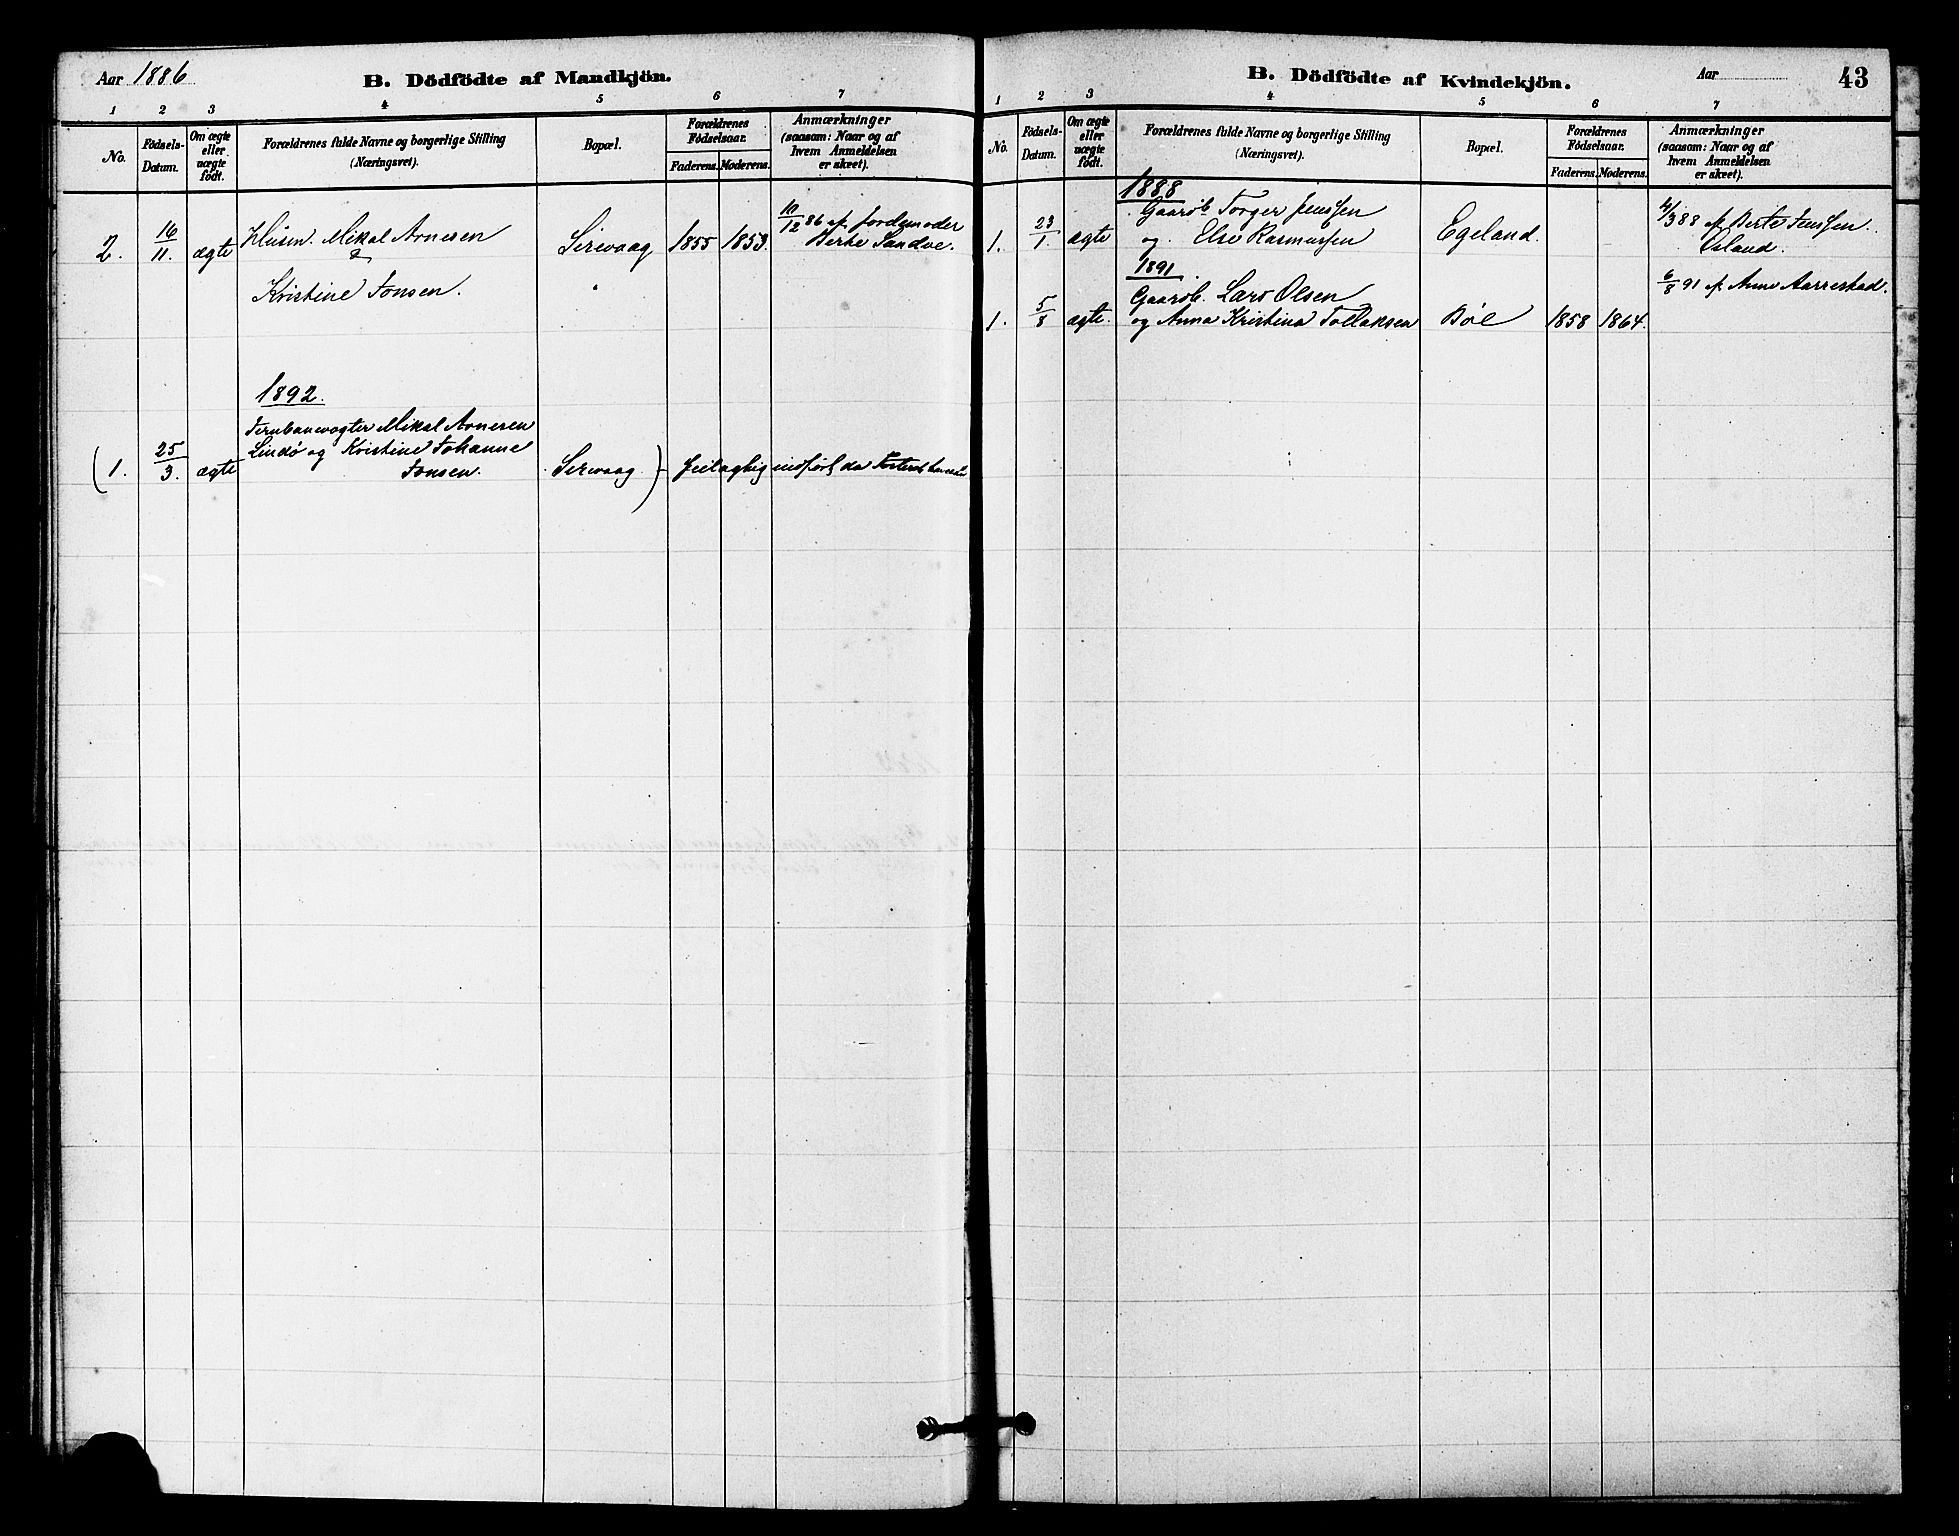 Aar 1886.
B. Dödfödte af Mandkjön.
1 2 3 4 5 6 7
No.
Födsels-
Datum.
Om ægte
eller
uægte
födt.
Forældrenes fulde Navne og borgerlige Stilling
(Næringsvei).
Bopæl.
Forældrenes
Födselsaar.
Faderens. Moderens.
Anmærkninger
(saasom: Naar og af
hvem Anmeldelsen
er skeet).
2. 16/11. ægte Husm. Mikal Arnesen Sirevaag 1855 1853. 10/12 86 af Jordemoder
Berte Sandve.
&
Kristine Jonsen. "
1892.
Jernbanevogter Mikal Arnesen
(1. 25/3. ægte Lindø og Kristine Johanne
Jonsen. Sirevaag) - feilagtig indført da Fosteret
B. Dödfödte af Kvindekjön.
Aar
43
1 2 3 4 5 6 7
No.
Födsels-
Datum.
Om ægte
eller
uægte
födt.
Forældrenes fulde Navne og borgerlige Stilling
(Næringsvei).
Bopæl.
Forældrenes
Födselsaar.
Faderens. Moderens.
Anmærkninger
(saasom: Naar og af
hvem Anmeldelsen
er skeet).
1888
1. 23/1 ægte Gaarbr. Torger Jenssen
og Else Rasmussen Egeland. 4/3 88 af Berte Jenssen
1891.
Gaarbr. Lars Olsen 6/8 91 af Anne Aarrestad.
1. 5/8 ægte. og Anna Kristina Tollaksen Bøe 1858 1864.